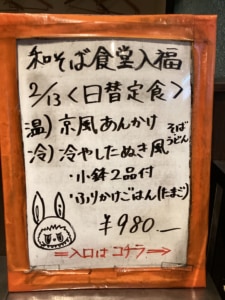 和そば食堂入福
2/13<日替定食>
温)京風あんかけ そば うどん
冷)冷やしたぬき風
・小鉢2品付
・ふりかけごはん(たまご)
¥980.—
⇒入口はコチラ→